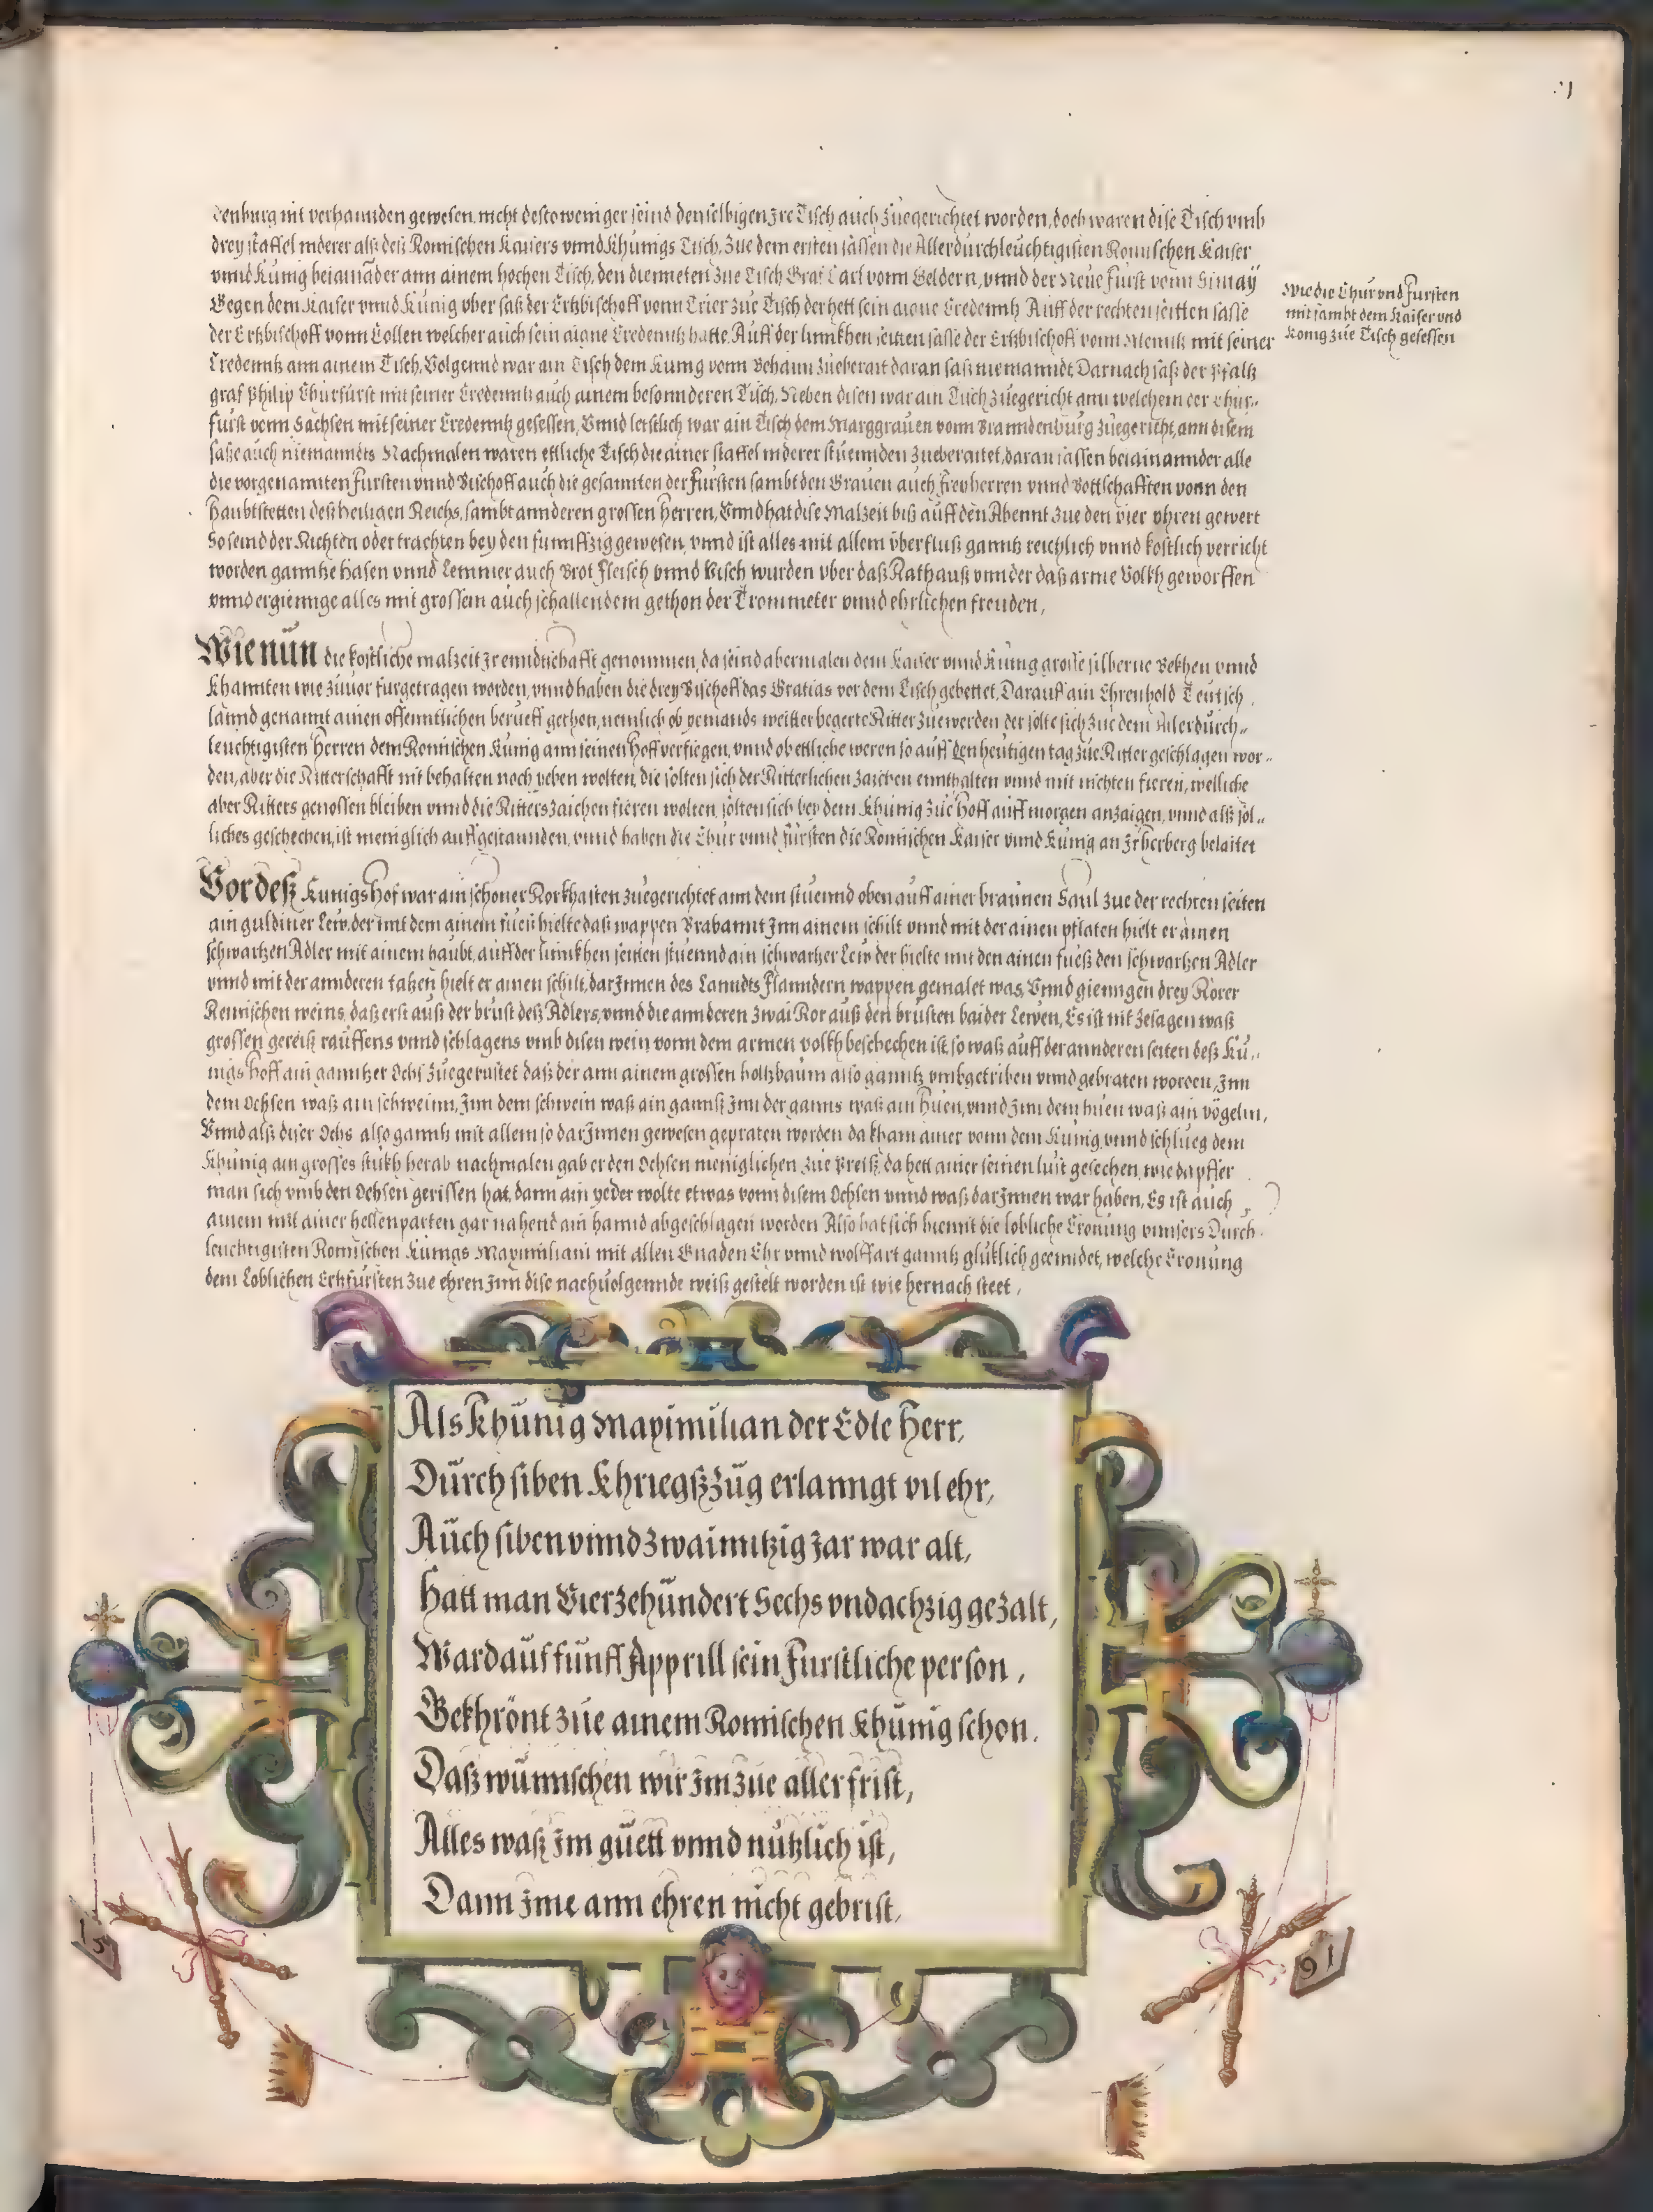 denburg nit verhannden gewesen. nicht destoweniger seind denselbigen Ire Tisch auch zuegerichtet worden, doch waren dise Tisch vmb
drey staffel niderer alß deß Romischen Kaisers vnnd Khunigs Tisch. Zue dem ersten sassen die Allerdurchleuchtigisten Romischen Kaiser
vnnd Kunig beiainander ann ainem hochen Tisch, den dienneten zue Tisch Graf Carl vonn Geldern, vnnd der Neue Furst vonn Simay
Gegen dem Kaiser vnnd Kunig vber saß der Ertzbischoff vonn Trier zue Tisch der hett sein aigne Credenntz Auff der rechten seitten sasse
der Ertzbischoff vonn Collen welcher auch sein aigne Credenntz hatte. Auff der linnkhen seitten sasse der Ertzbischoff vonn Mentz mit seiner
Credenntz ann ainem Tisch, Volgennd war ain Tisch dem Kunig vonn Behaim zueberait daran saß niemanndt Darnach saß der Pfaltz
graf Philip Churfurst mit seiner Credenntz auch ainem besonnderen Tisch. Neben disen war ain Tisch zuegericht ann welchem der Chur-
furst vonn Sachsen mit seiner Credenntz gesessen, Vnnd letstlich war ain Tisch dem Marggrauen vonn Branndenburg zuegericht, ann disem
sasse auch niemanndts Nachmalen waren ettliche Tisch die ainer staffel niderer stuennden zueberaitet, daran sassen beiainannder alle
die vorgenannten Fursten vnnd Bischoff auch die gesannten der Fursten sambt den Grauen auch Freyherren vnnd Bottschafften vonn den
Haubtstetten deß heiligen Reichs, sambt annderen grossen Herren, Vnnd hat dise Malzeit biß auff den Abennt zue den vier vhren gewert
So seind der Richten oder trachten bey den funnffzig gewesen, vnnd ist alles mit allem vberfluß ganntz reichlich vnnd kostlich verricht
worden ganntze Hasen vnnd Lemmer auch Brot Fleisch vnnd Visch wurden vber daß Rathauß vnnder daß arme Volkh geworffen
vnnd ergiennge alles mit grossem auch schallendem gethon der Trommeter vnnd ehrlichen freuden,
Wie nun die kostliche malzeit Ir enndtschafft genommen, da seind abermalen dem Kaiser vnnd Kunig grosse silberne Bekhen vnnd
Khannten wie zuuor furgetragen worden, vnnd haben die drey Bischoff das Gratias vor dem Tisch gebettet. Darauff ain Ehrenhold Teutsch
lannd genannt ainen offenntlichen berueff gethon, nemlich ob yemands weitter begerte Ritter zuewerden der solte sich zue dem Allerdurch-
leuchtigisten Herren dem Romischen Kunig ann seinen Hoff verfiegen, vnnd ob ettliche weren so auff den heutigen tag zue Ritter geschlagen wor-
den, aber die Ritterschafft nit behalten noch yeben wolten, die solten sich der Ritterlichen zaichen ennthalten vnnd mit nichten fieren, welliche
aber Ritters genossen bleiben vnnd die Ritters zaichen fieren wolten, solten sich bey dem Khunig zue Hoff auff morgen anzaigen, vnnd alß sol-
liches geschechen, ist meniglich auffgestannden, vnnd haben die Chur vnnd Fursten die Romischen Kaiser vnnd Kunig an Ir herberg belaitet
Vor deß Kunigs Hof war ain schoner Rorkhasten zuegerichtet ann dem stuennd oben auff ainer braunen Saul zue der rechten seiten
ain guldiner Lew, der mit dem ainem fueß hielte daß wappen Brabannt Inn ainem schilt vnnd mit der ainen pflaten hielt er ainen
schwartzen Adler mit ainem haubt, auff der linnkhen seitten stuennd ain schwartzer Lew der hielte mit den ainen fueß den schwartzen Adler
vnnd mit der annderen tatzen hielt er ainen schilt, darInnen des Lanndts Flanndern wappen gemalet was, Vnnd giengen drey Rorer
Reinischen weins, daß erst auß der brust deß Adlers, vnnd die annderen zwai Ror auß den brusten baider Lewen, Es ist nit zesagen waß
grossen gereiß rauffens vnnd schlagens vmb disen wein vonn dem armen volkh beschechen ist, so waß auff der annderen seiten deß Ku-
nigs Hoff ain ganntzer Ochs zuegerustet daß der ann ainem grossen holtzbaum also ganntz vmbgetriben vnnd gebraten worden, Inn
dem Ochsen waß ain schwein, Inn dem schwein waß ain ganns Inn der ganns waß ain Huen, vnnd Inn dem huen waß ain vögelin,
Vnnd alß diser Ochs also ganntz mit allem so darInnen gewesen gepraten worden da kham ainer vonn dem Kunig, vnnd schlueg dem
Khunig ain grosses stukh herab nachmalen gab er den Ochsen meniglichen zue Preiß, da hett ainer seinen lust gesechen, wie dapffer
man sich vmb den Ochsen gerissen hat, dann ain yeder wolte etwas vonn disem Ochsen vnnd waß darInnen war haben, Es ist auch
ainem mit ainer hellenparten gar nahend ain hannd abgeschlagen worden Also hat sich hiemit die lobliche Cronung vnnsers Durch-
leuchtigisten Romischen Kunigs Maximiliani mit allen Gnaden Ehr vnnd wolffart ganntz gluklich geenndet, welche Cronung
dem Loblichen Ertzfursten zue ehren Inn dise nachuolgennde weiß gestelt worden ist wie hernach steet,
Wie die Chur vnd Fursten
mit sambt dem Kaiser vnd
Konig zue Tisch gesessen
Als Khünig Maximilian der Edle Herr,
Dürch siben Khriegßzüg erlanngt vil ehr,
Aüch siben vnnd zwainntzig Jar war alt,
Hatt man Vierzehündert Sechs vnd achzig gezalt,
Ward aüf fünff Apprill sein Furstliche person,
Gekhrönt züe ainem Romischen Khünig schon.
Daß wünnschen wir Im züe aller frist,
Alles waß Im güett vnnd nützlich ist,
Dann Ime ann ehren nicht gebrist.
15
91